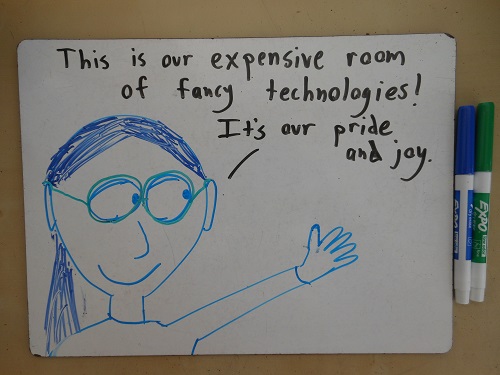 This is our expensive room
of fancy technologies!
It's our pride
and joy.
EXPO
EXPO